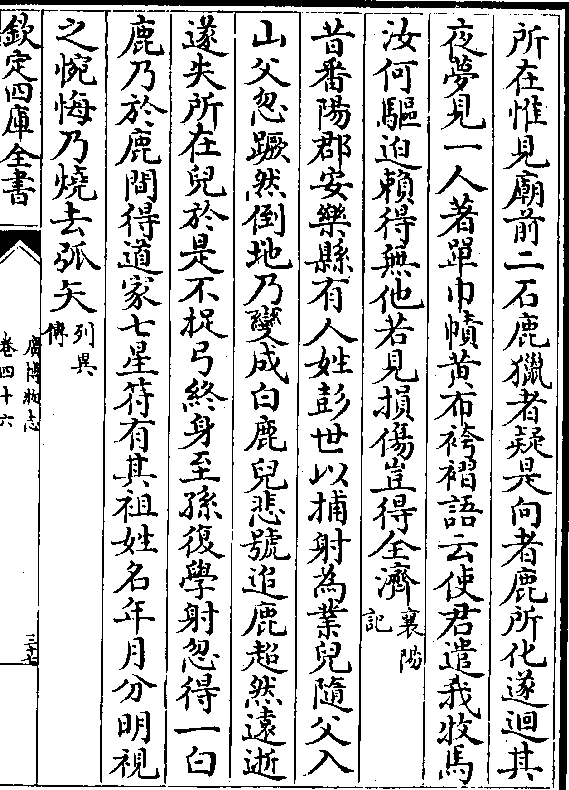 所在惟見廟前二石鹿獵者疑是向者鹿所化遂迴其
夜夢見一人著單巾幘黃布袴褶語云使君遣我牧馬
汝何驅迫賴得無他若見損傷豈得全濟襄陽記
昔番陽郡安樂縣有人姓彭世以捕射為業兒隨父入
山父忽蹶然倒地乃變成白鹿兒悲號追鹿超然遠逝
遂失所在兒於是不捉弓終身至孫復學射忽得一白
鹿乃於鹿間得道家七星符有其祖姓名年月分明視
之惋悔乃燒去弧矢列異傳
欽定四庫全書
廣博物志
卷四十六
三十七